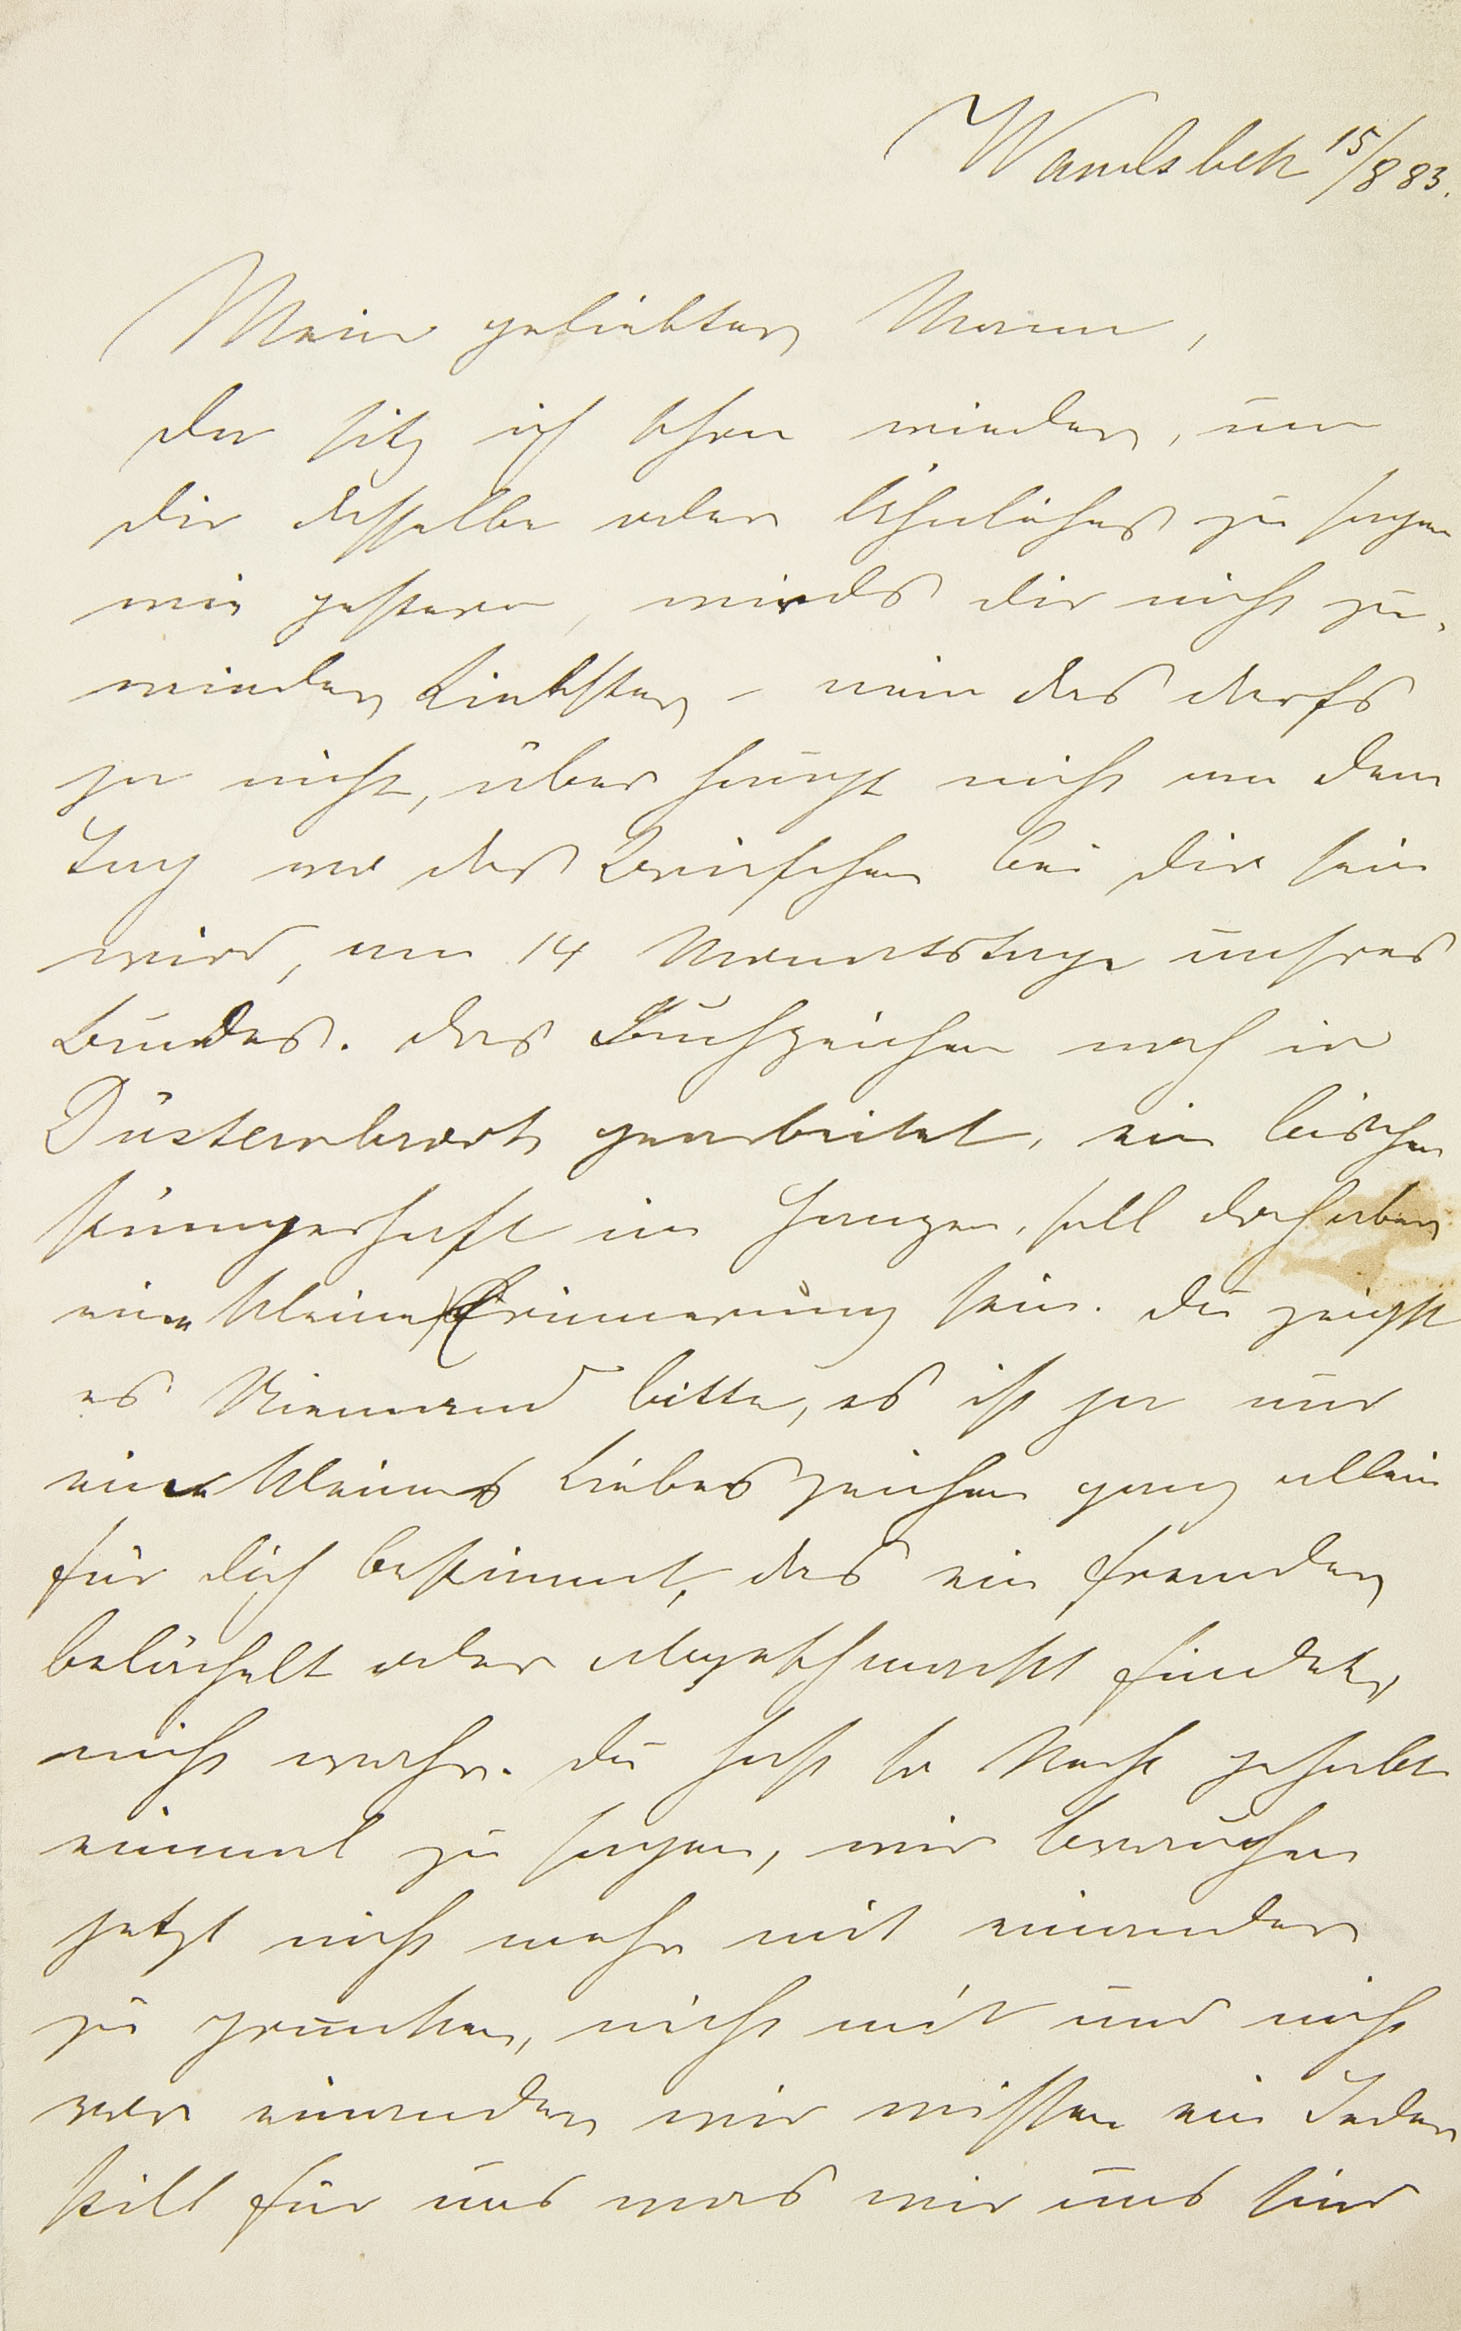 Wandsbek 15/8 83.
Mein geliebter Mann,
da sitz ich schon wieder, um
dir dasselbe oder Ähnliches zu sagen
wie gestern, wirds dir nicht zu-
wieder Liebster – nein das darfs
ja nicht, überhaupt nicht an dem
Tag wo das Briefchen bei dir sein
wird, am 14 Monatstage unsres
Bundes. Das Buchzeichen noch in
Düsternbrook gearbeitet, ein bischen
stümperhaft im Ganzen, soll doch aber
eine kleine Erinnerung sein. Du zeigst
es Niemand bitte, es ist ja nur
ein kleines Liebeszeichen ganz allein
für dich bestimmt, das ein Fremder
belächelt oder abgeschmackt findet,
nicht wahr. Du hast so Recht gehabt
einmal zu sagen, wir brauchen
jetzt nicht mehr mit einander
zu prunken, nicht mit und nicht
vor einander wir wissen ein Jeder
still für uns was wir uns sind